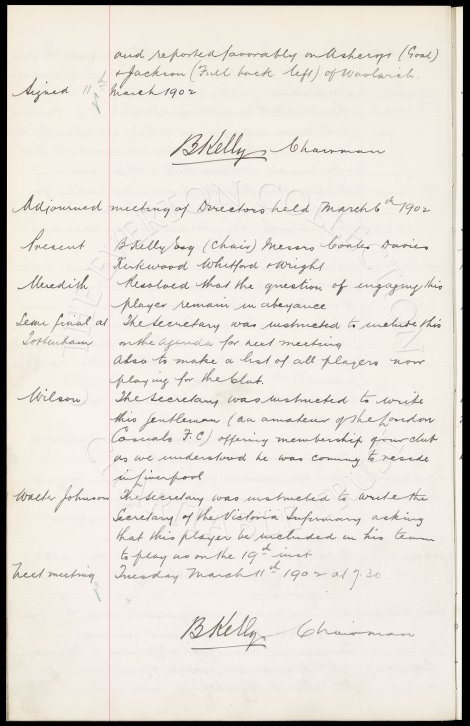 and reported favorably on Ashcroft (Goal)
& Jackson (Full back left) of Woolwich.
Signed 11th March 1902
B Kelly Chairman
Adjourned meeting of Directors held March 6th 1902
Present B Kelly Esq (Chair) Messrs Coates Davies
Kirkwood Whitford & Wright
Meredith Resolved that the question of engaging this
player remain in abeyance
Semi final at The Secretary was instructed to include this
Tottenham on the Agenda for next meeting
Also to make a list of all players now
playing for the Club.
Wilson The Secretary was instructed to write
this gentleman (an amateur of the London
Casuals F.C) offering membership of our club
as we understood he was coming to reside
in Liverpool
Walter Johnson The Secretary was instructed to write the
Secretary of the Victoria Infirmary asking
that this player be included in his team
to play us on the 19th inst
Next meeting Tuesday March 11th 1902 at 7.30
B Kelly Chairman
THE EVERTON COLLECTION